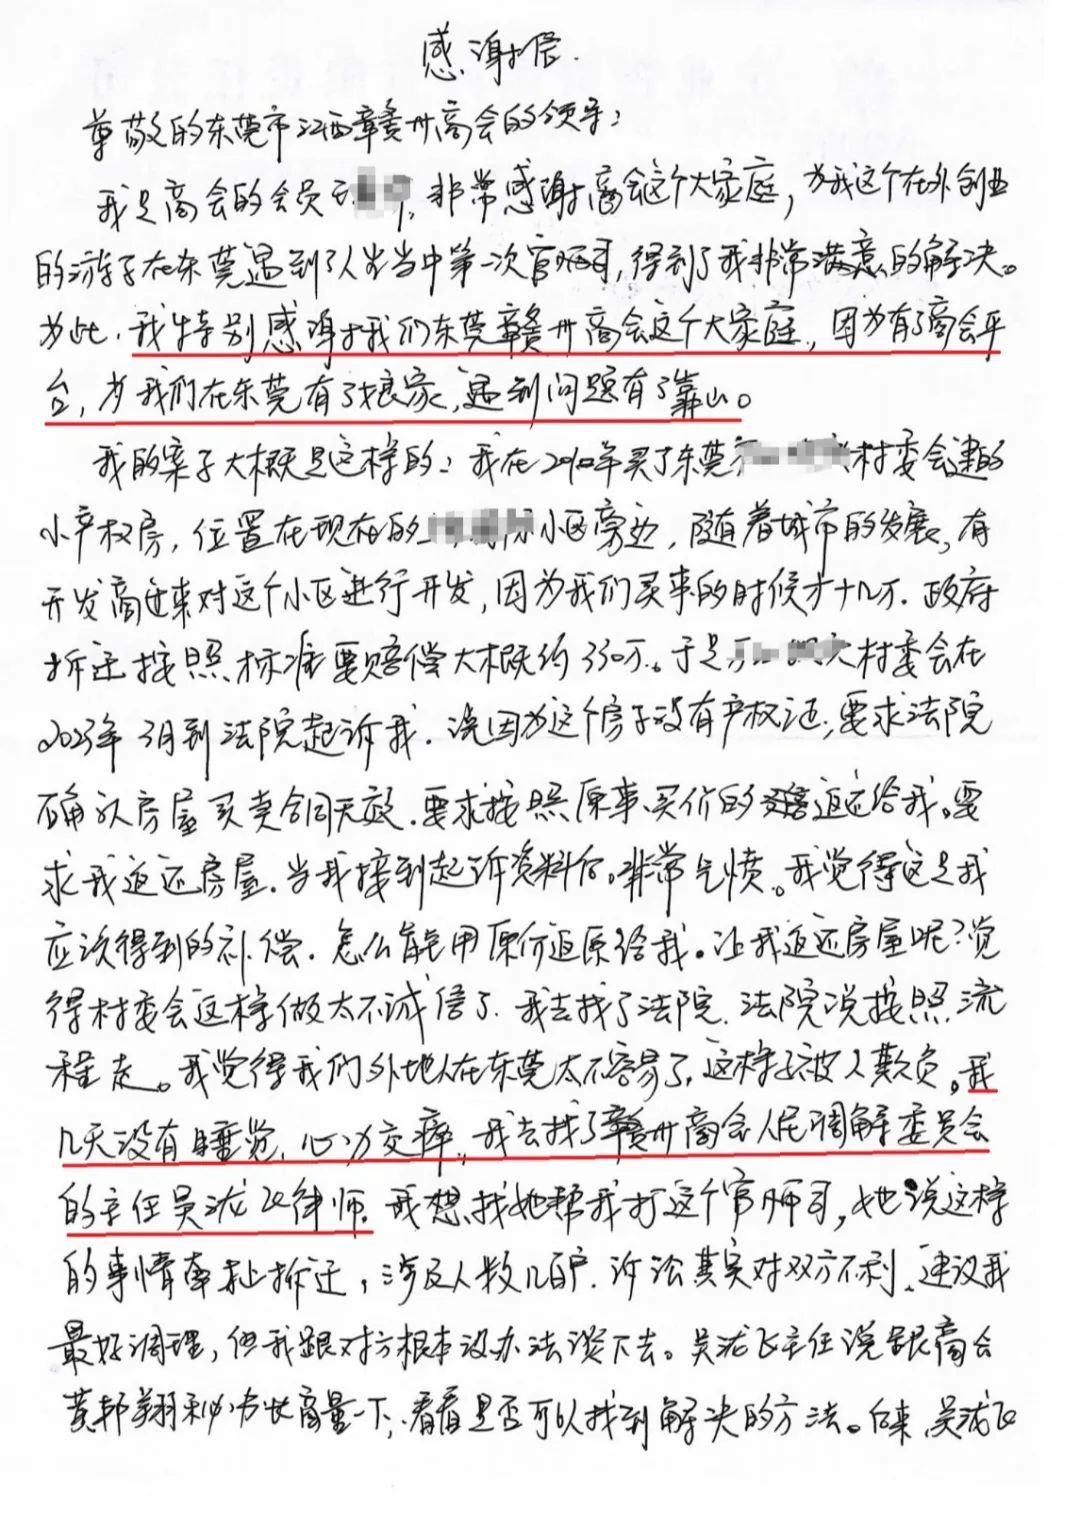 感谢信.
尊敬的东莞市江西赣州商会的领导：
我是商会的会员 非常感谢商会这个大家庭，为我这个在外创业
的游子在东莞遇到了人生当中第一次官司，得到了我非常满意的解决。
为此，我特别感谢我们东莞赣州商会这个大家庭，因为有了商会平
台，为我们在东莞有了娘家，遇到问题有了靠山。
我的案子大概是这样的：我在2010年买了东莞 村委会建的
小产权房，位置在现在的 小区旁边，随着城市的发展，有
开发商进来对这个小区进行开发，因为我们买来的时候才十几万．政府
拆迁按照标准要赔偿大概约330万。于是 村委会在
2023年3月到法院起诉我．说因为这个房子没有产权证，要求法院
确认房屋买卖合同无效．要求按照原来买价的 返还给我。要
求我返还房屋．当我接到起诉资料后。非常气愤。我觉得这是我
应该得到的补偿．怎么能用原价返原给我。让我返还房屋呢？觉
得村委会这样做太不诚信了．我去找了法院．法院说按照流
程走。我觉得我们外地人在东莞太不容易了，这样子被人欺负。我
几天没有睡觉，心力交瘁，我去找了赣州商会人民调解委员会
的主任吴泷飞律师．我想找她帮我打这个官司，她说这样
的事情牵扯拆迁，涉及人数几百户．诉讼其实对双方不利、建议我
最好调理，但我跟对方根本没办法谈下去。吴泷飞主任说跟商会
黄邦翔秘书长商量一下，看看是否可以找到解决的方法。后来，吴泷飞